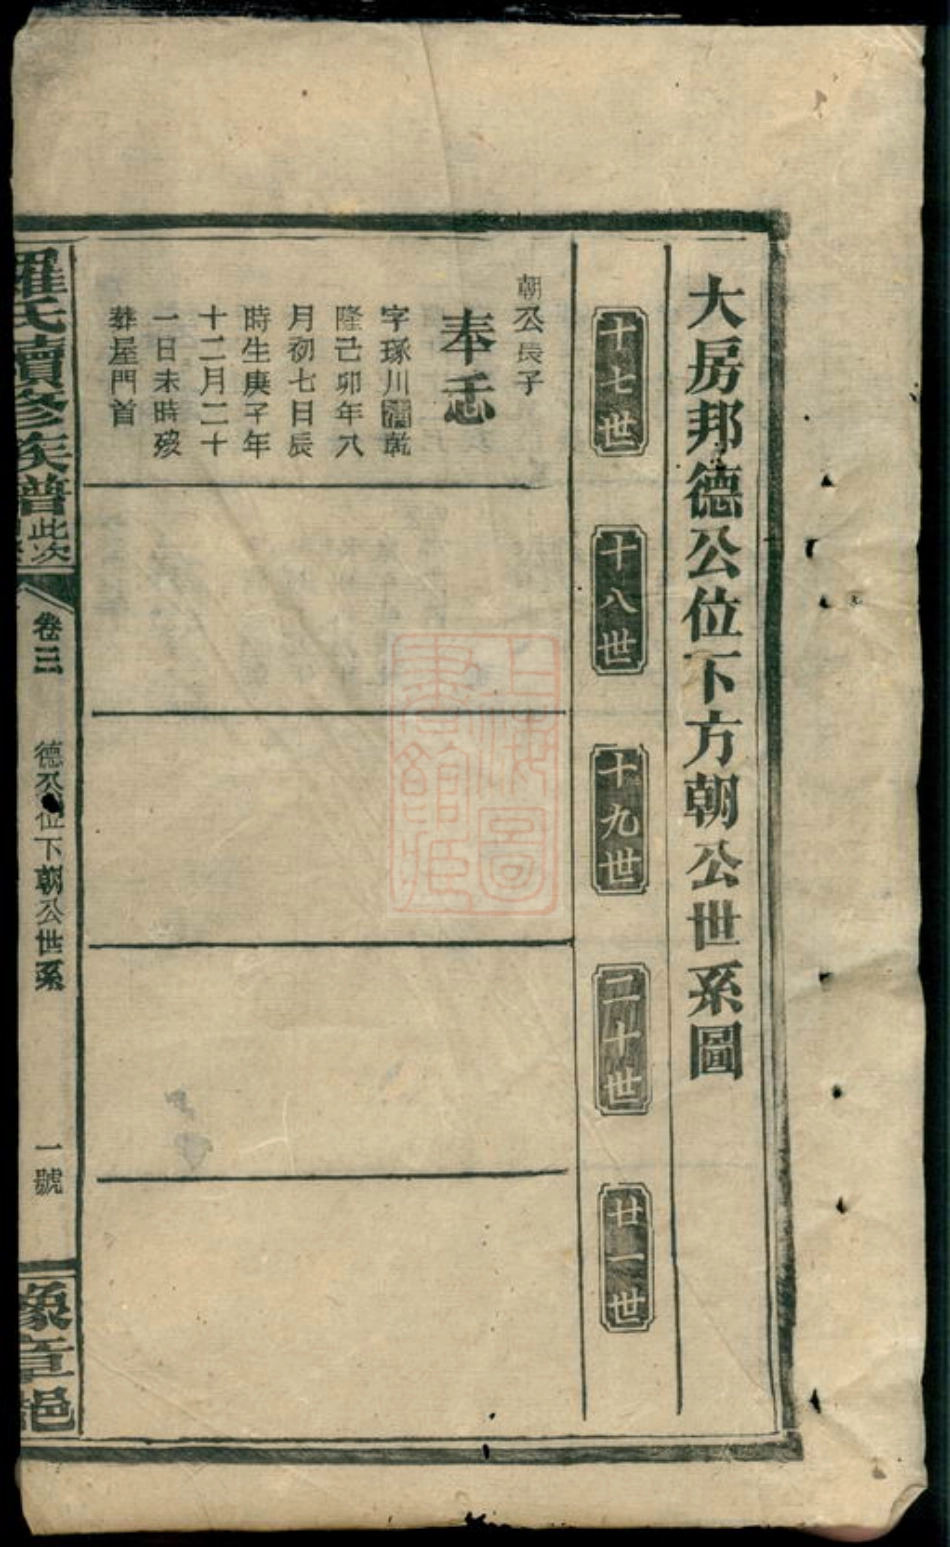 大房邦德公位下方朝公世系圖
十七世
十八世
十九世
二十世
廿一世
朝公長子
奉忎
字琢川清乾
隆己卯年八
月初七日辰
時生庚子年
十二月二十
一日未時歿
葬屋門首
羅氏續修族譜
此次
卷三
德公位下朝公世系
一號
豫章
上海圖
書館